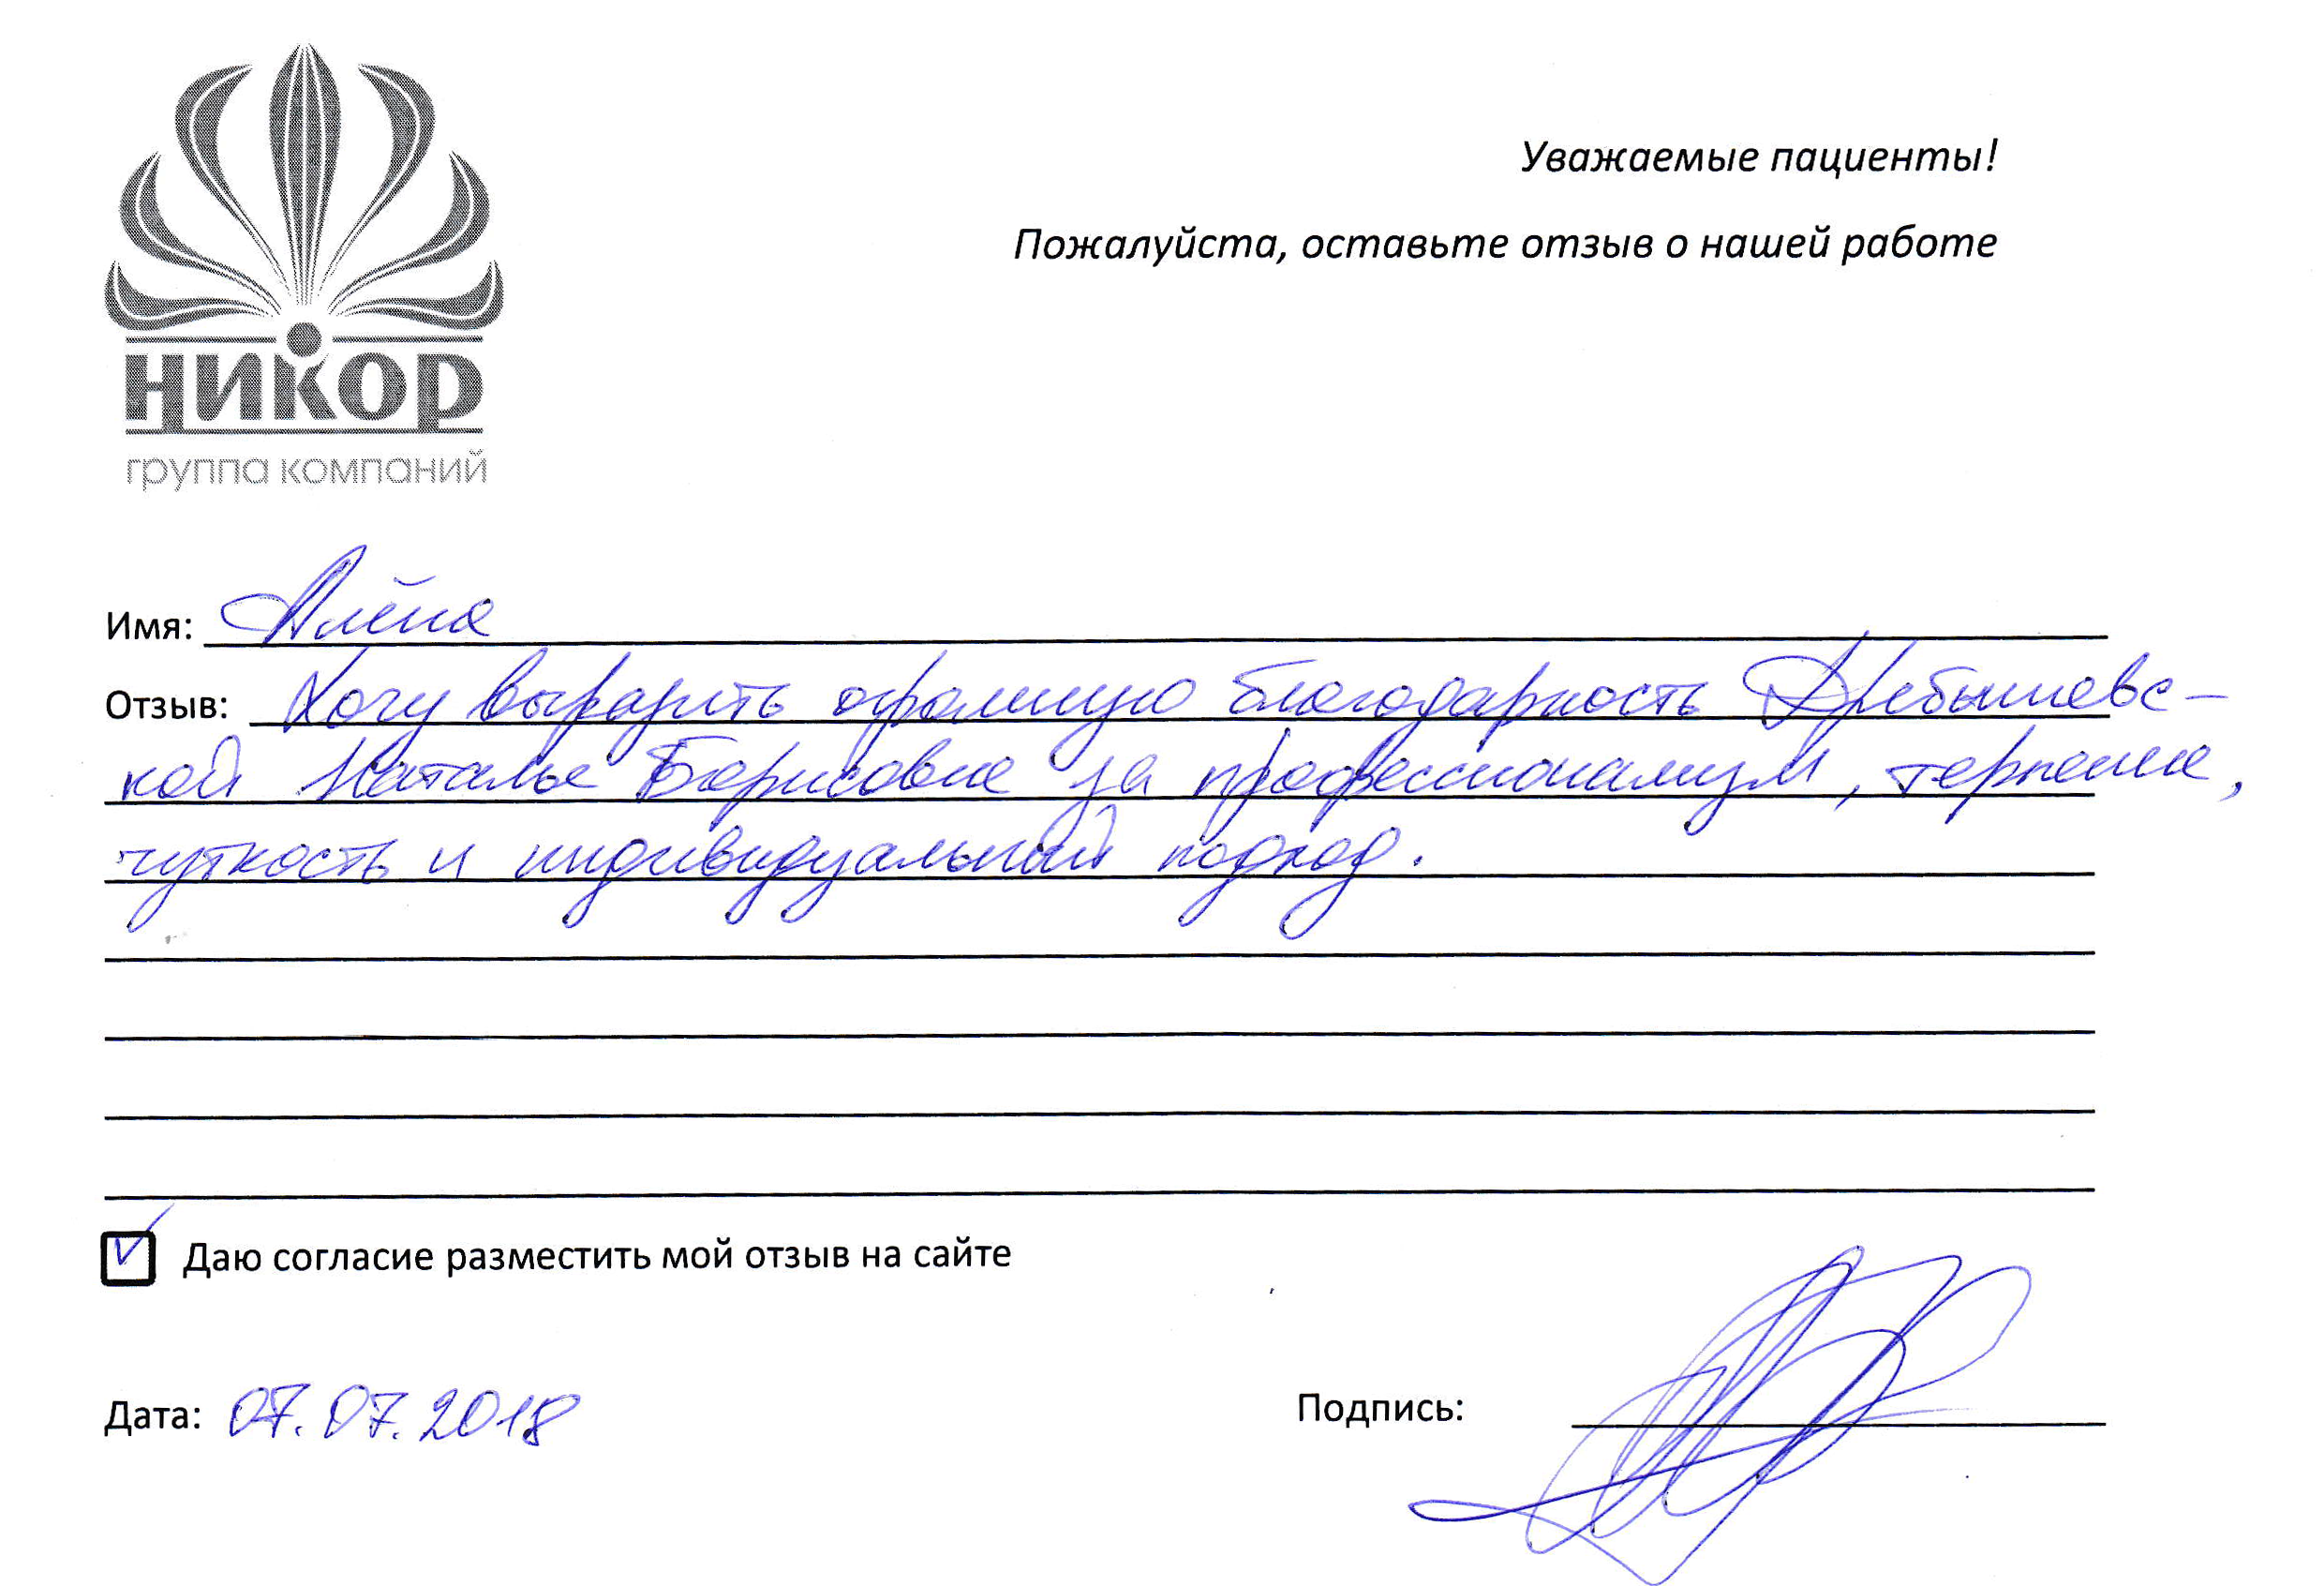 НИКОР
группа компаний
Уважаемые пациенты!
Пожалуйста, оставьте отзыв о нашей работе
Имя: Алёна
Отзыв: Хочу выразить огромную благодарность Дребышевс-
кой Наталье Борисовне за профессионализм, терпение,
чуткость и индивидуальный подход.
Даю согласие разместить мой отзыв на сайте
Дата: 07.07.2018
Подпись: